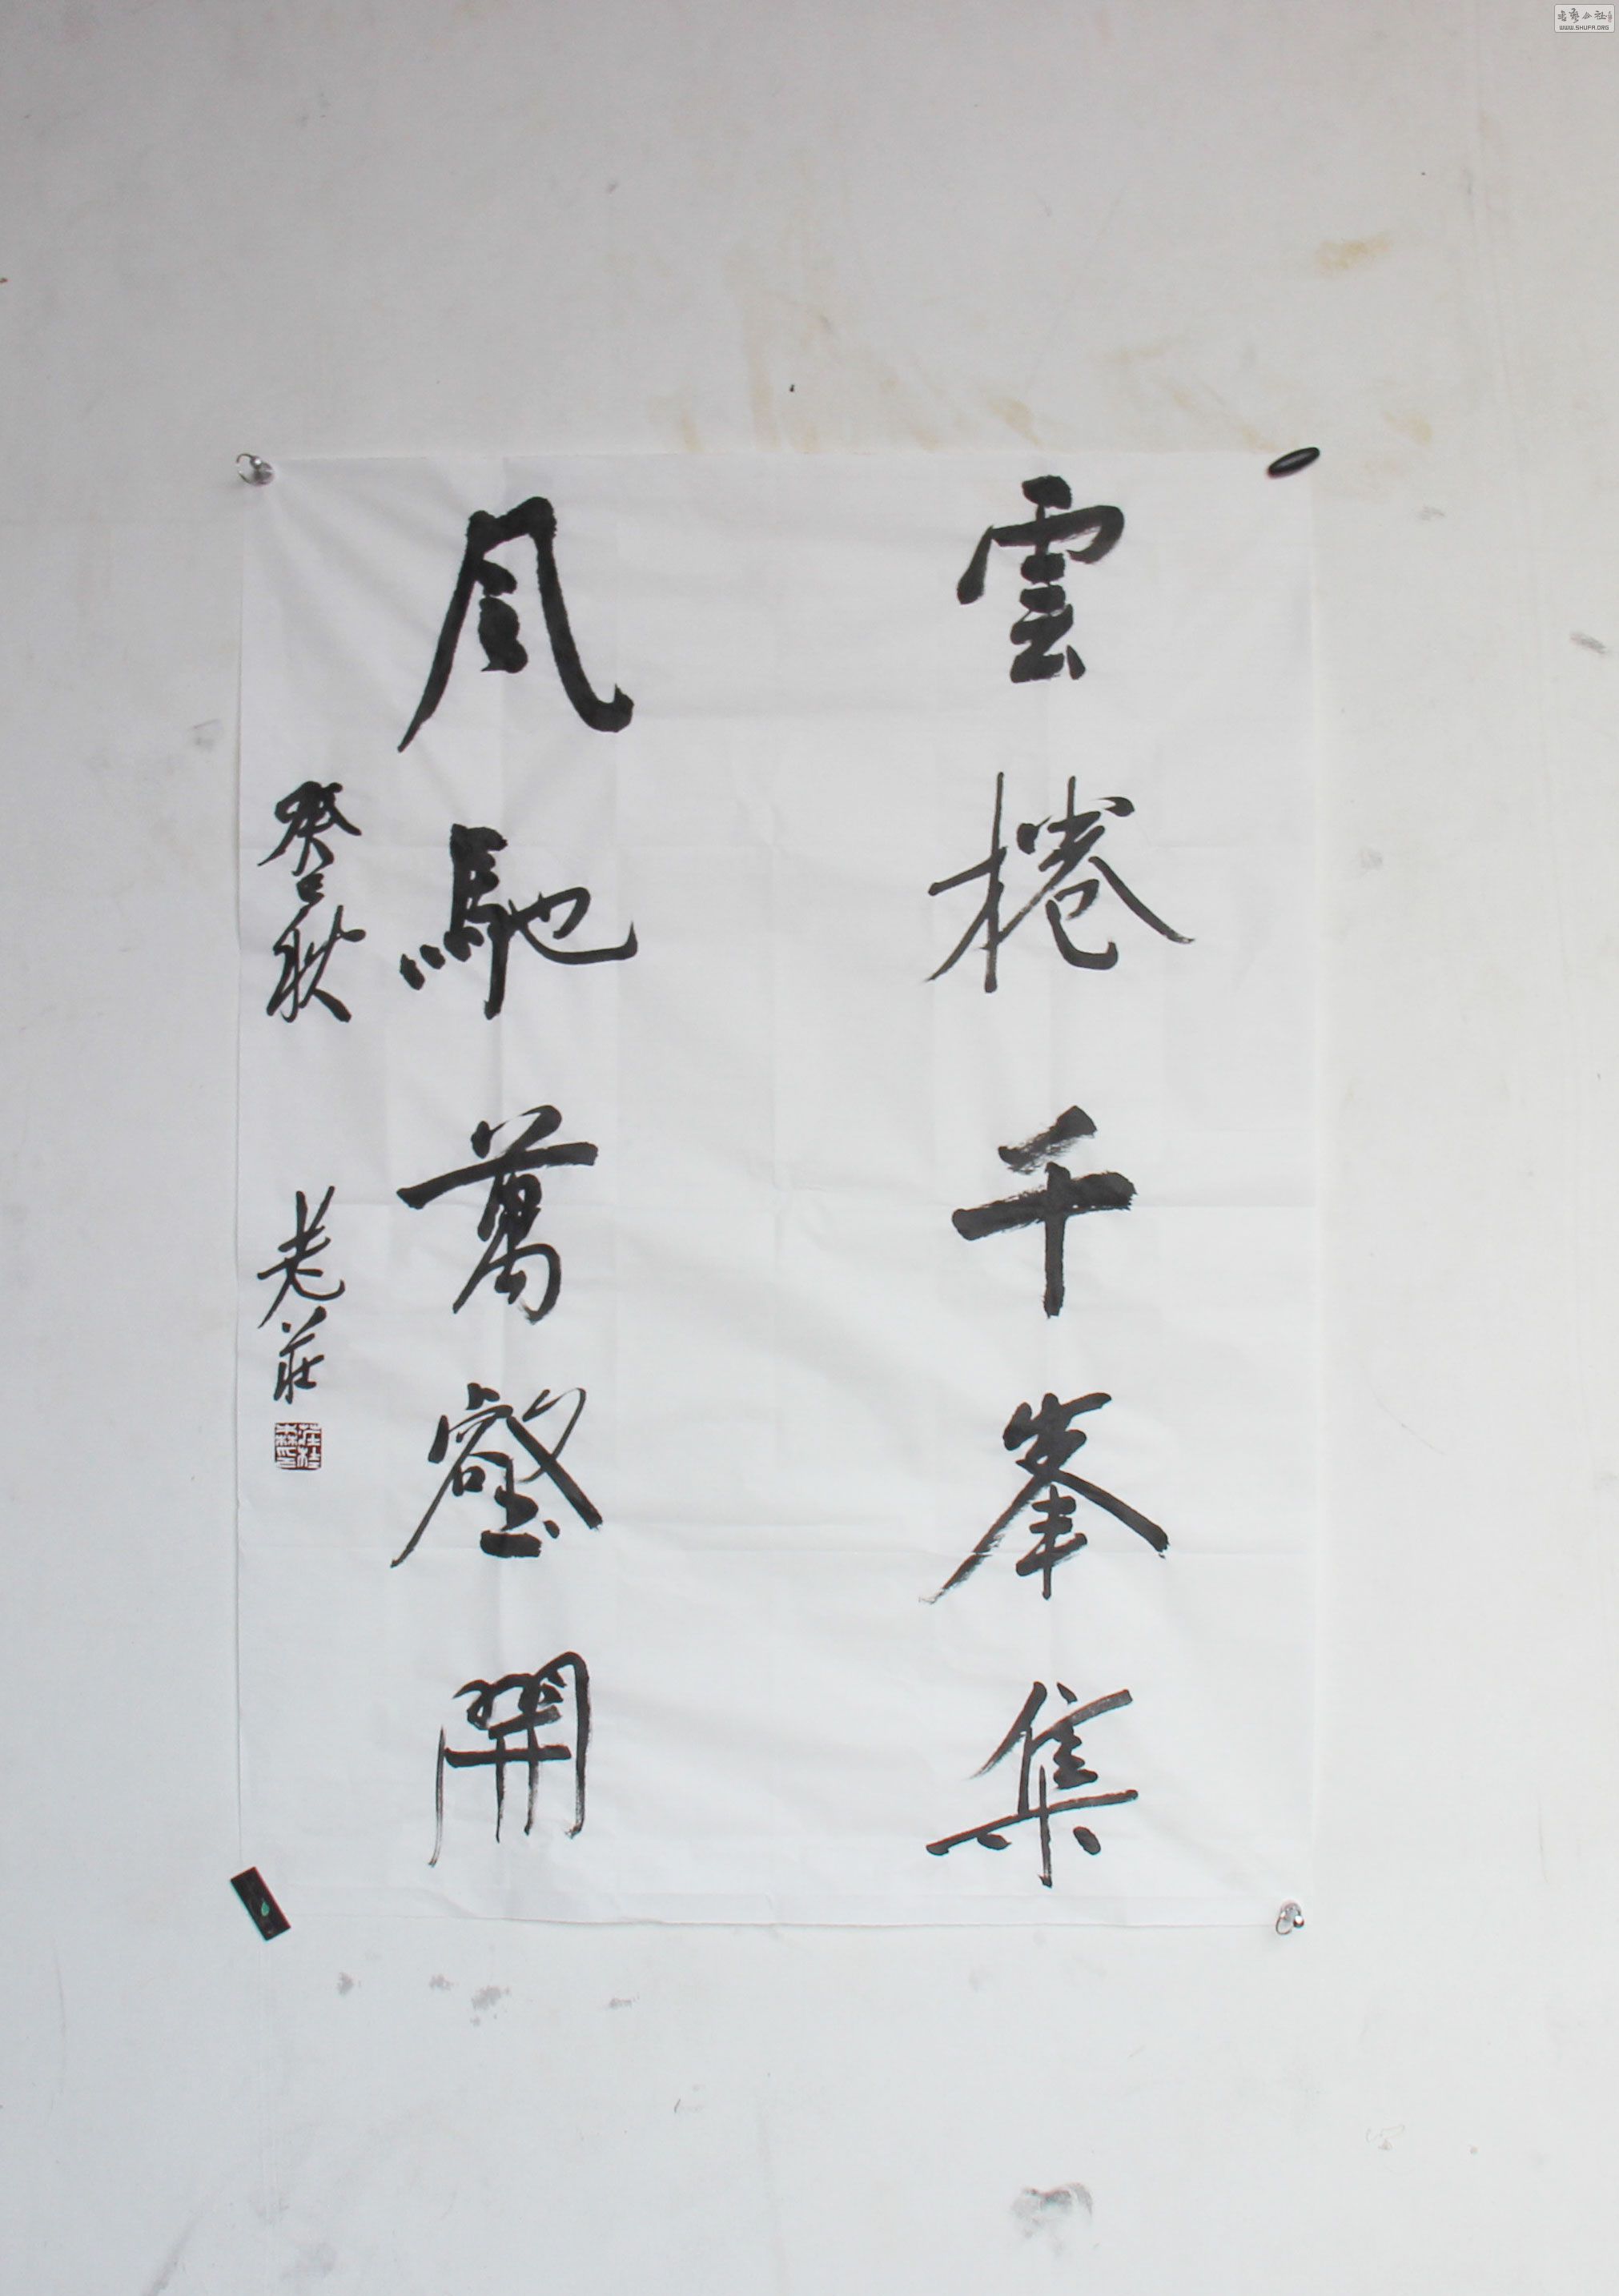 雲捲千峯集
風馳萬壑開
癸巳秋 老莊
WWW.SHUFA.ORG